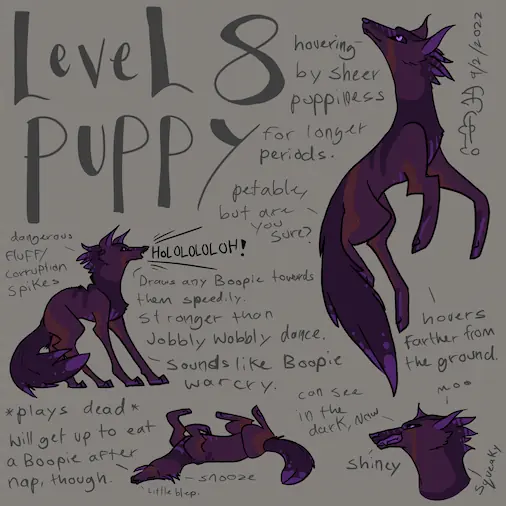 Level 8
puppy
hovering
by sheer
puppiness
for longer
periods.
9/2/2022
petable,
but are
you
sure?
dangerous
fluffy
corruption
spikes
HOLOLOLOLOH!
Draws any Boopie towards
them speedily.
Stronger than
Jobbly Wobbly dance.
Sounds like Boopie
warcry.
hovers
farther from
the ground.
*plays dead*
Will get up to eat
a Boopie after
nap, though.
snooze
Little blep.
can see
in the
dark, now
moo
shiney
Squeaky